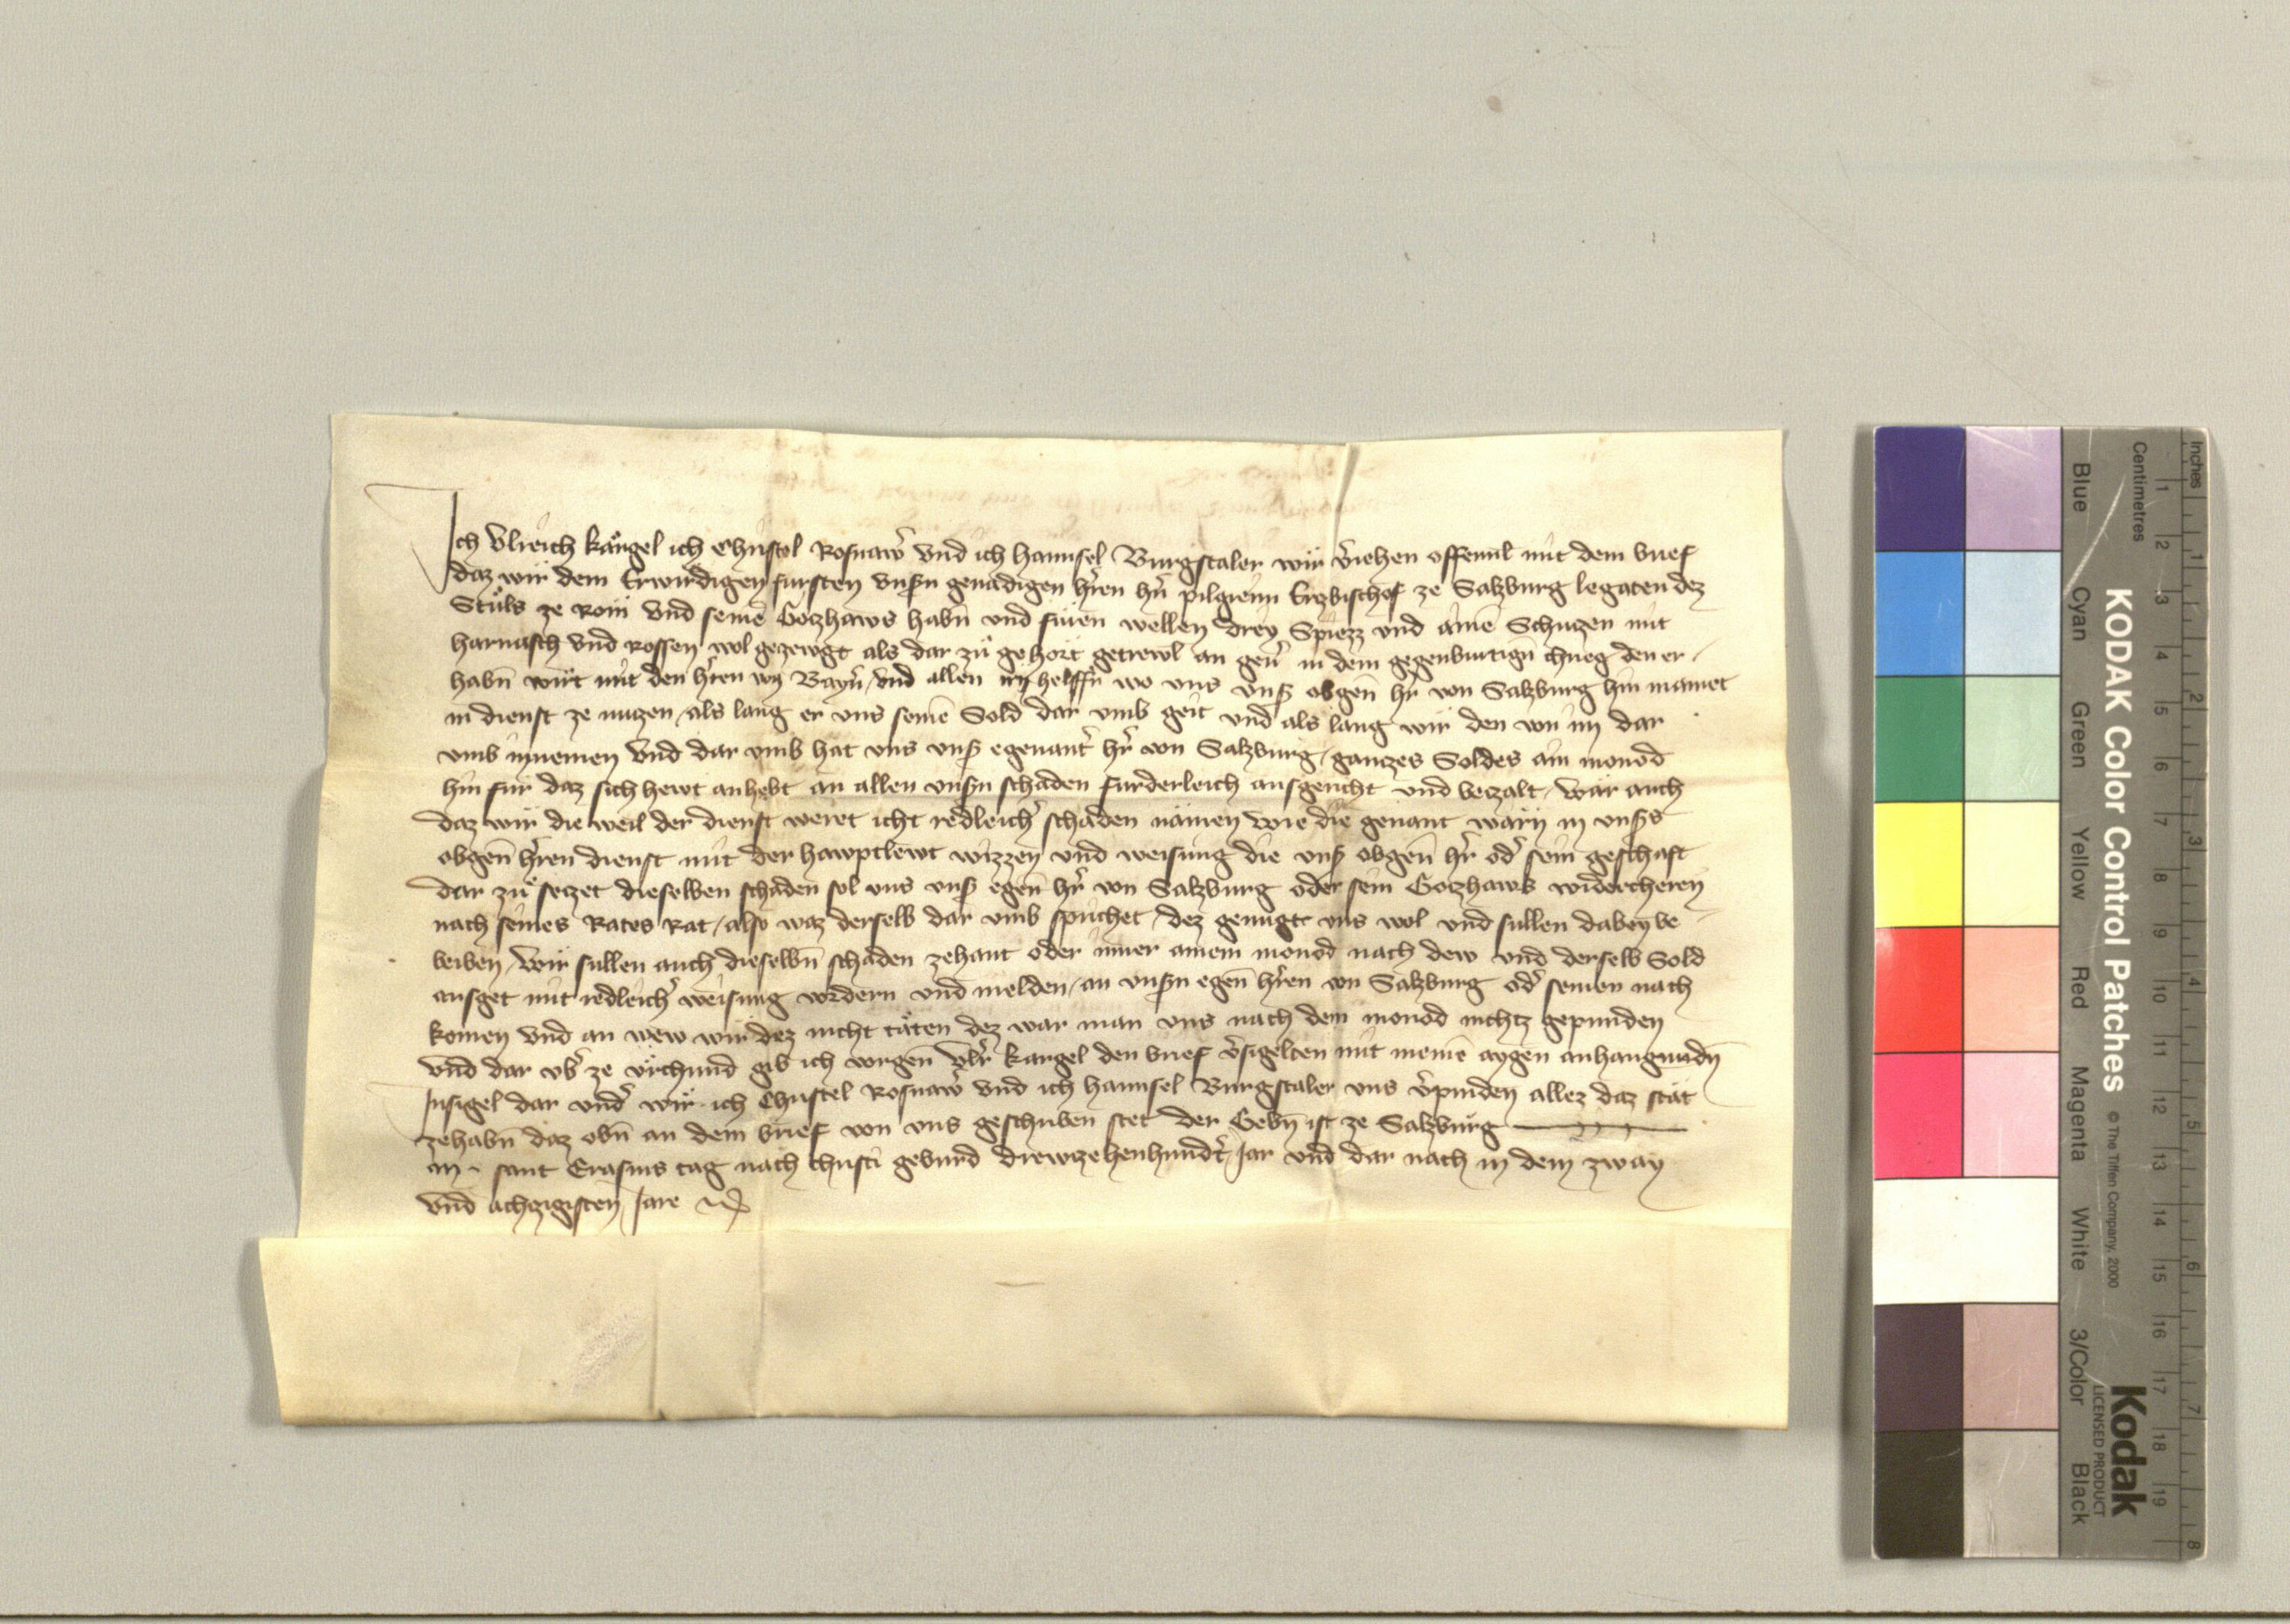 Ich Vlreich kärgel ich Christol Rosnaw̉ vnd ich hannsel Burgstaler wir v̉iehen offennl mit dem brief
daz wir dem Erwirdigen fursten vnsꝰn genadigen hr̉en hr̉n pilgreim Erzbischof ze Salzburg legaten dez
Stuͤls ze Rom vnd seinē Gotzhaws habn̄ vnd fuͤren wellen drey Spiezz vnd ainē Schuzen mit
harnasch vnd rossen wol gezewgt als dar zuͦ gehört getrewl an geu̓ in dem gegenburtign̄ chrieg den er
habn̄ wirt mit den hr̉en von Bayrn̄ vnd allen irn helffn̄ wo vns vnsꝰ obgen̄ hr̉ von Salzburg hin mainet
in dienst ze nuzen als lang er vns seinē Sold dar vmb geit vnd als lang wir den von im dar
vmb innemen vnd dar vmb hat vns vnsꝰ egenant̉ hr̉ von Salzburg ganczes Soldes ain monod
hin fuͤr daz sich hewt anhebt an allen vnsꝰn schaden furderleich ausgericht vnd bezalt, wär auch
daz wir die weil der dienst weret icht redleich̉ schäden nämen wie die genant wärn in vnsꝰs
obgen̄ hr̉ren dienst mit der hawptlewt wizzen vnd weisung die vnsꝰ obgen̄ hr̉ od̉ sein geschäft
dar zuͦ seczet dieselben schäden sol vns vnsꝰ egen̄ hr̉ von Salzburg oder sein Gotzhaws widercheren
nach seines Rates Rat, also waz derselb dar vmb sprichet, dez genugt vns wol vnd sullen dabey be
leiben, Wir sullen auch dieselbn̄ schäden zehant oder inner ainem monod nach dew vnd derselb Sold
ausget mit redleich̉ weisung vordern vnd melden, an vnsꝰn egen̄ hr̉ren von Salzburg od̉ seinen nach
komen vnd an wew wir dez nicht täten dez wär man vns nach dem monod nichtz gepunden
vnd dar vb̉ ze vrchund gib ich vorgen̄ Vlr̉ kargel den brief v̉sigelten mit meinē aygen anhangundn̄
Insigel dar vnd̉ wir ich Christel Rosnaw̉ vnd ich hannsel Burgstaler vns v̉pinden allez daz stät
zehabn̄ daz obn̄ an dem brief von vns geschriben stet der Gebn̄ ist ze Salzburg
an sant Erasms tag nach christi geburd drewzehenhundt̉ Jar vnd dar nach in dem zway
vnd achtzigisten Jare
KODAK Color Control Patches © The Tiffen Company, 2000
Kodak
LICENSED PRODUCT
Inches 1 2 3 4 5 6 7 8
Centimetres 1 2 3 4 5 6 7 8 9 10 11 12 13 14 15 16 17 18 19
Blue Cyan Green Yellow Red Magenta White 3/Color Black